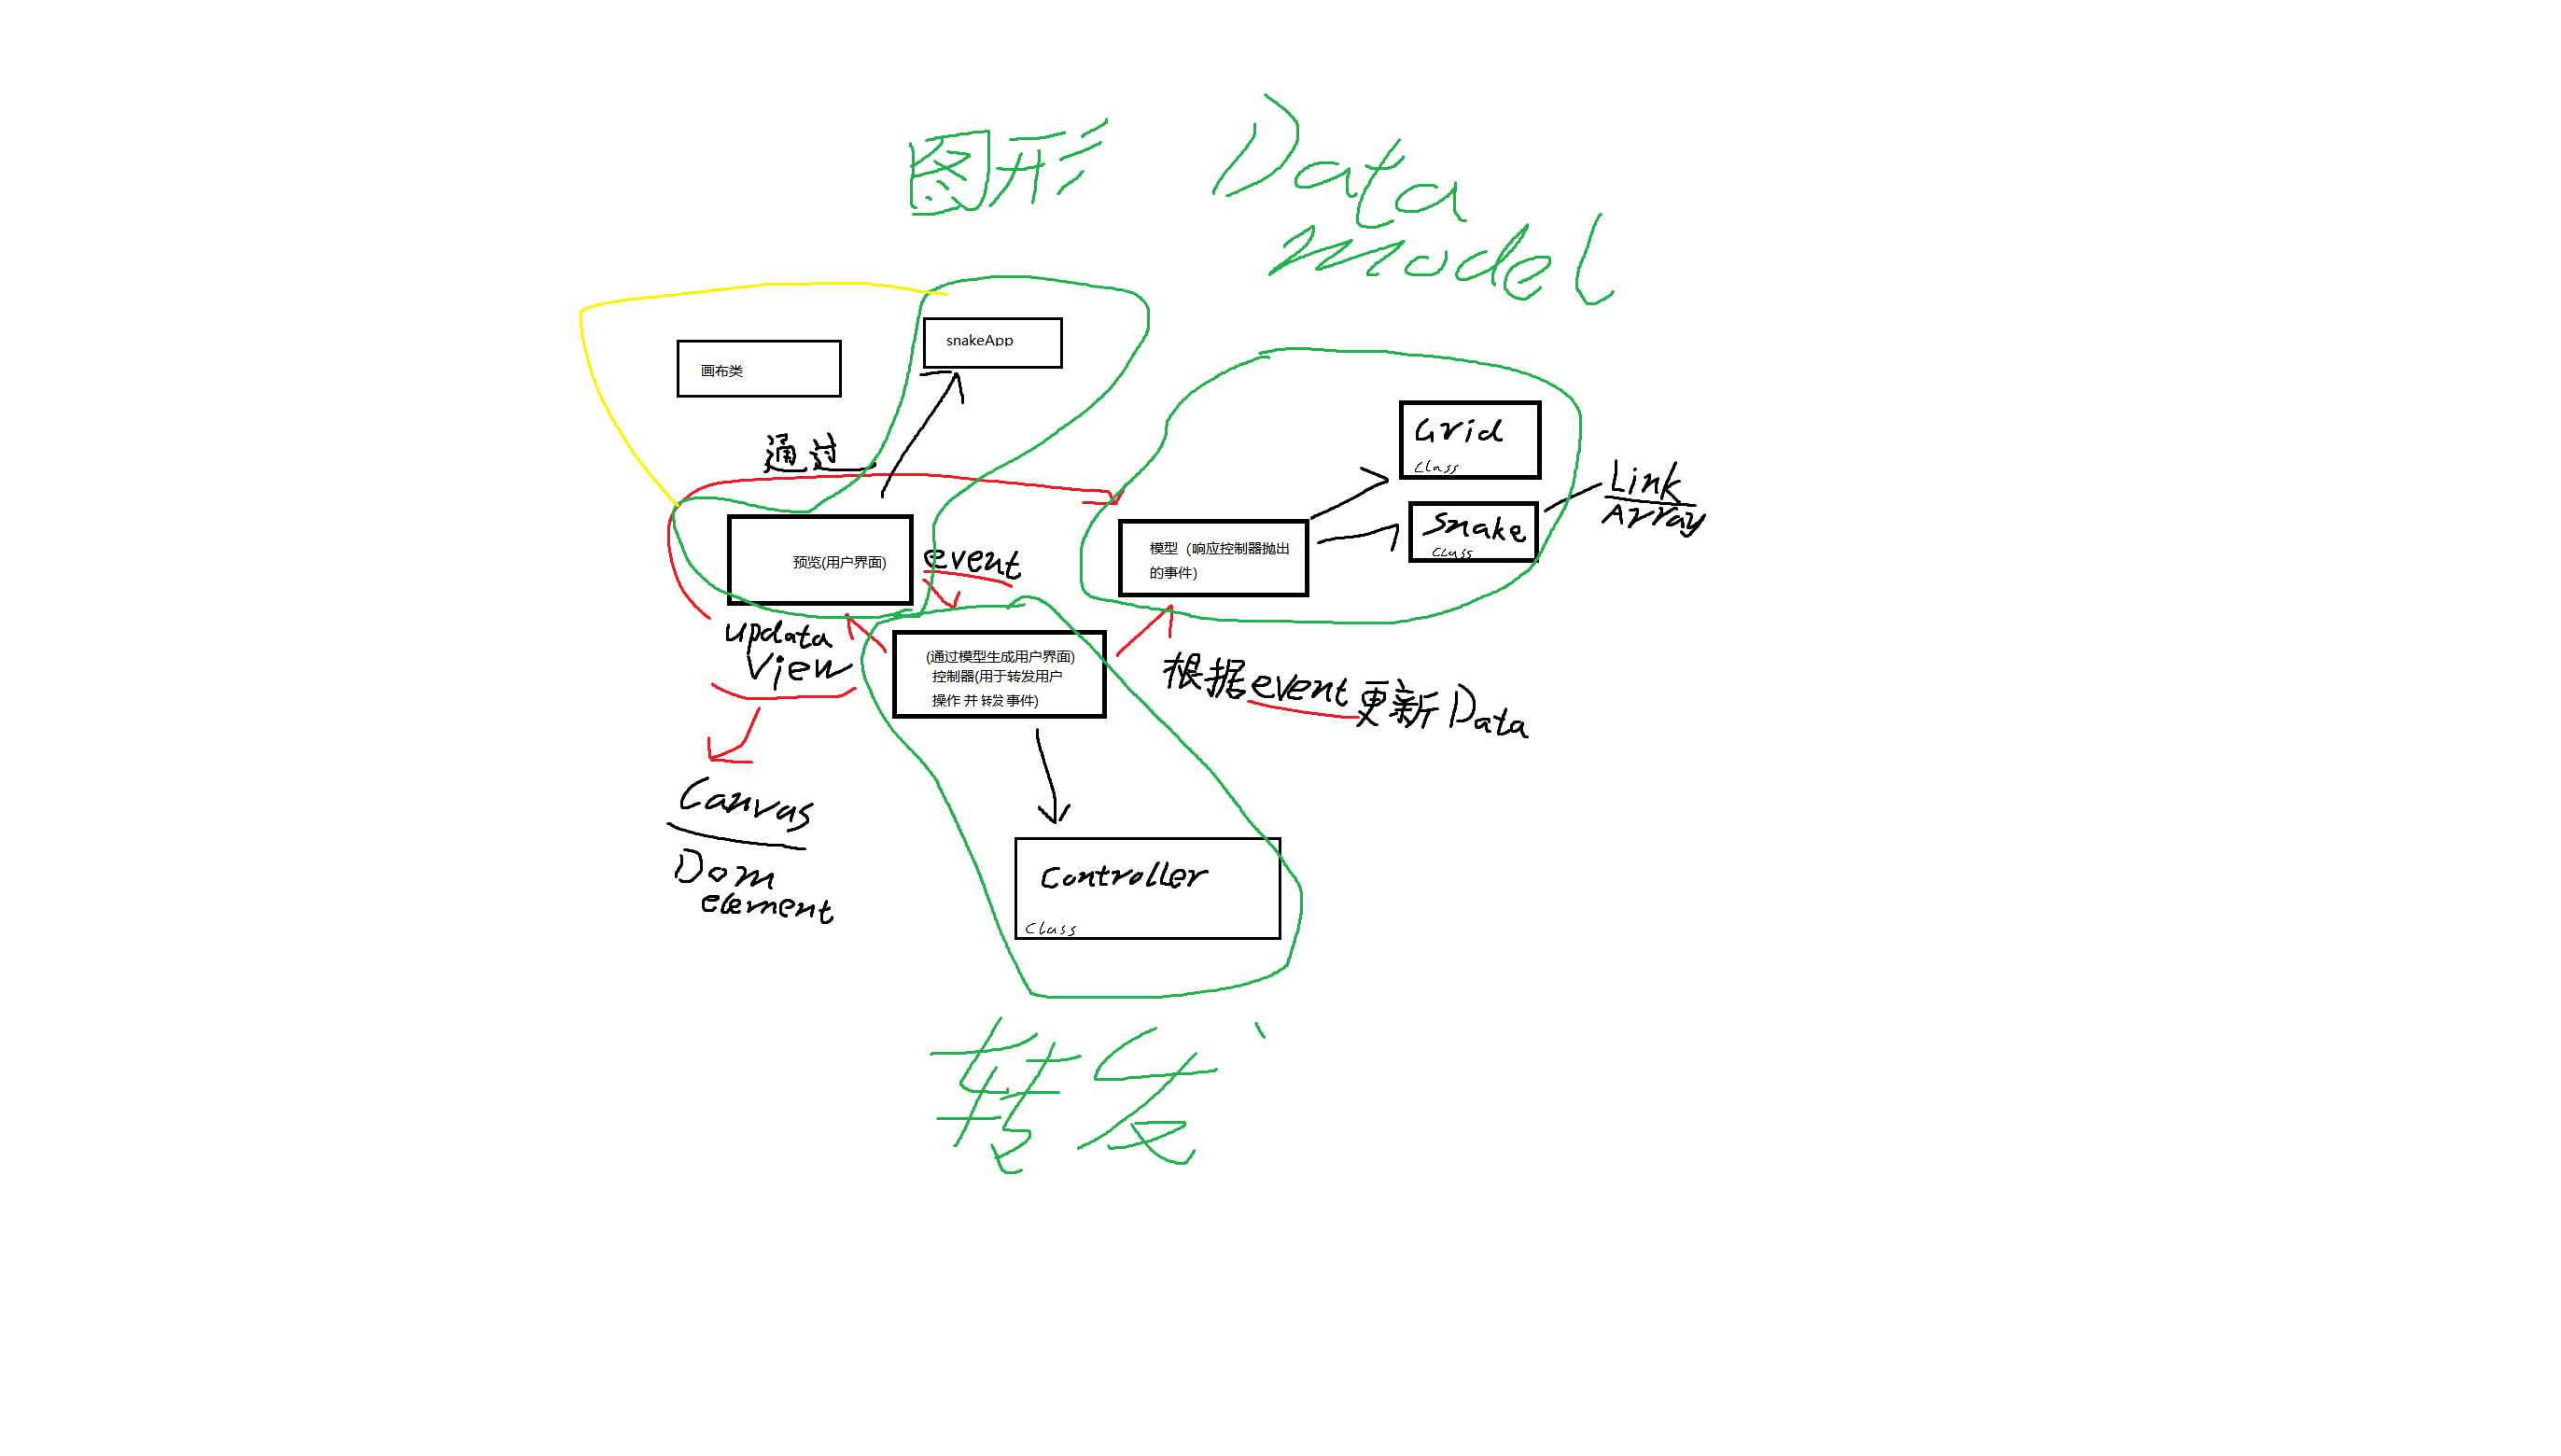 图形
Data
model
snakeApp
画布类
通过
Grid
Class
Link
Array
Snake
Class
预览(用户界面)
event
模型（响应控制器抛出
的事件)
updata
View
(通过模型生成用户界面)
控制器(用于转发用户
操作 并 转发 事件)
根据event更新Data
Canvas
Dom
element
Controller
Class
转发